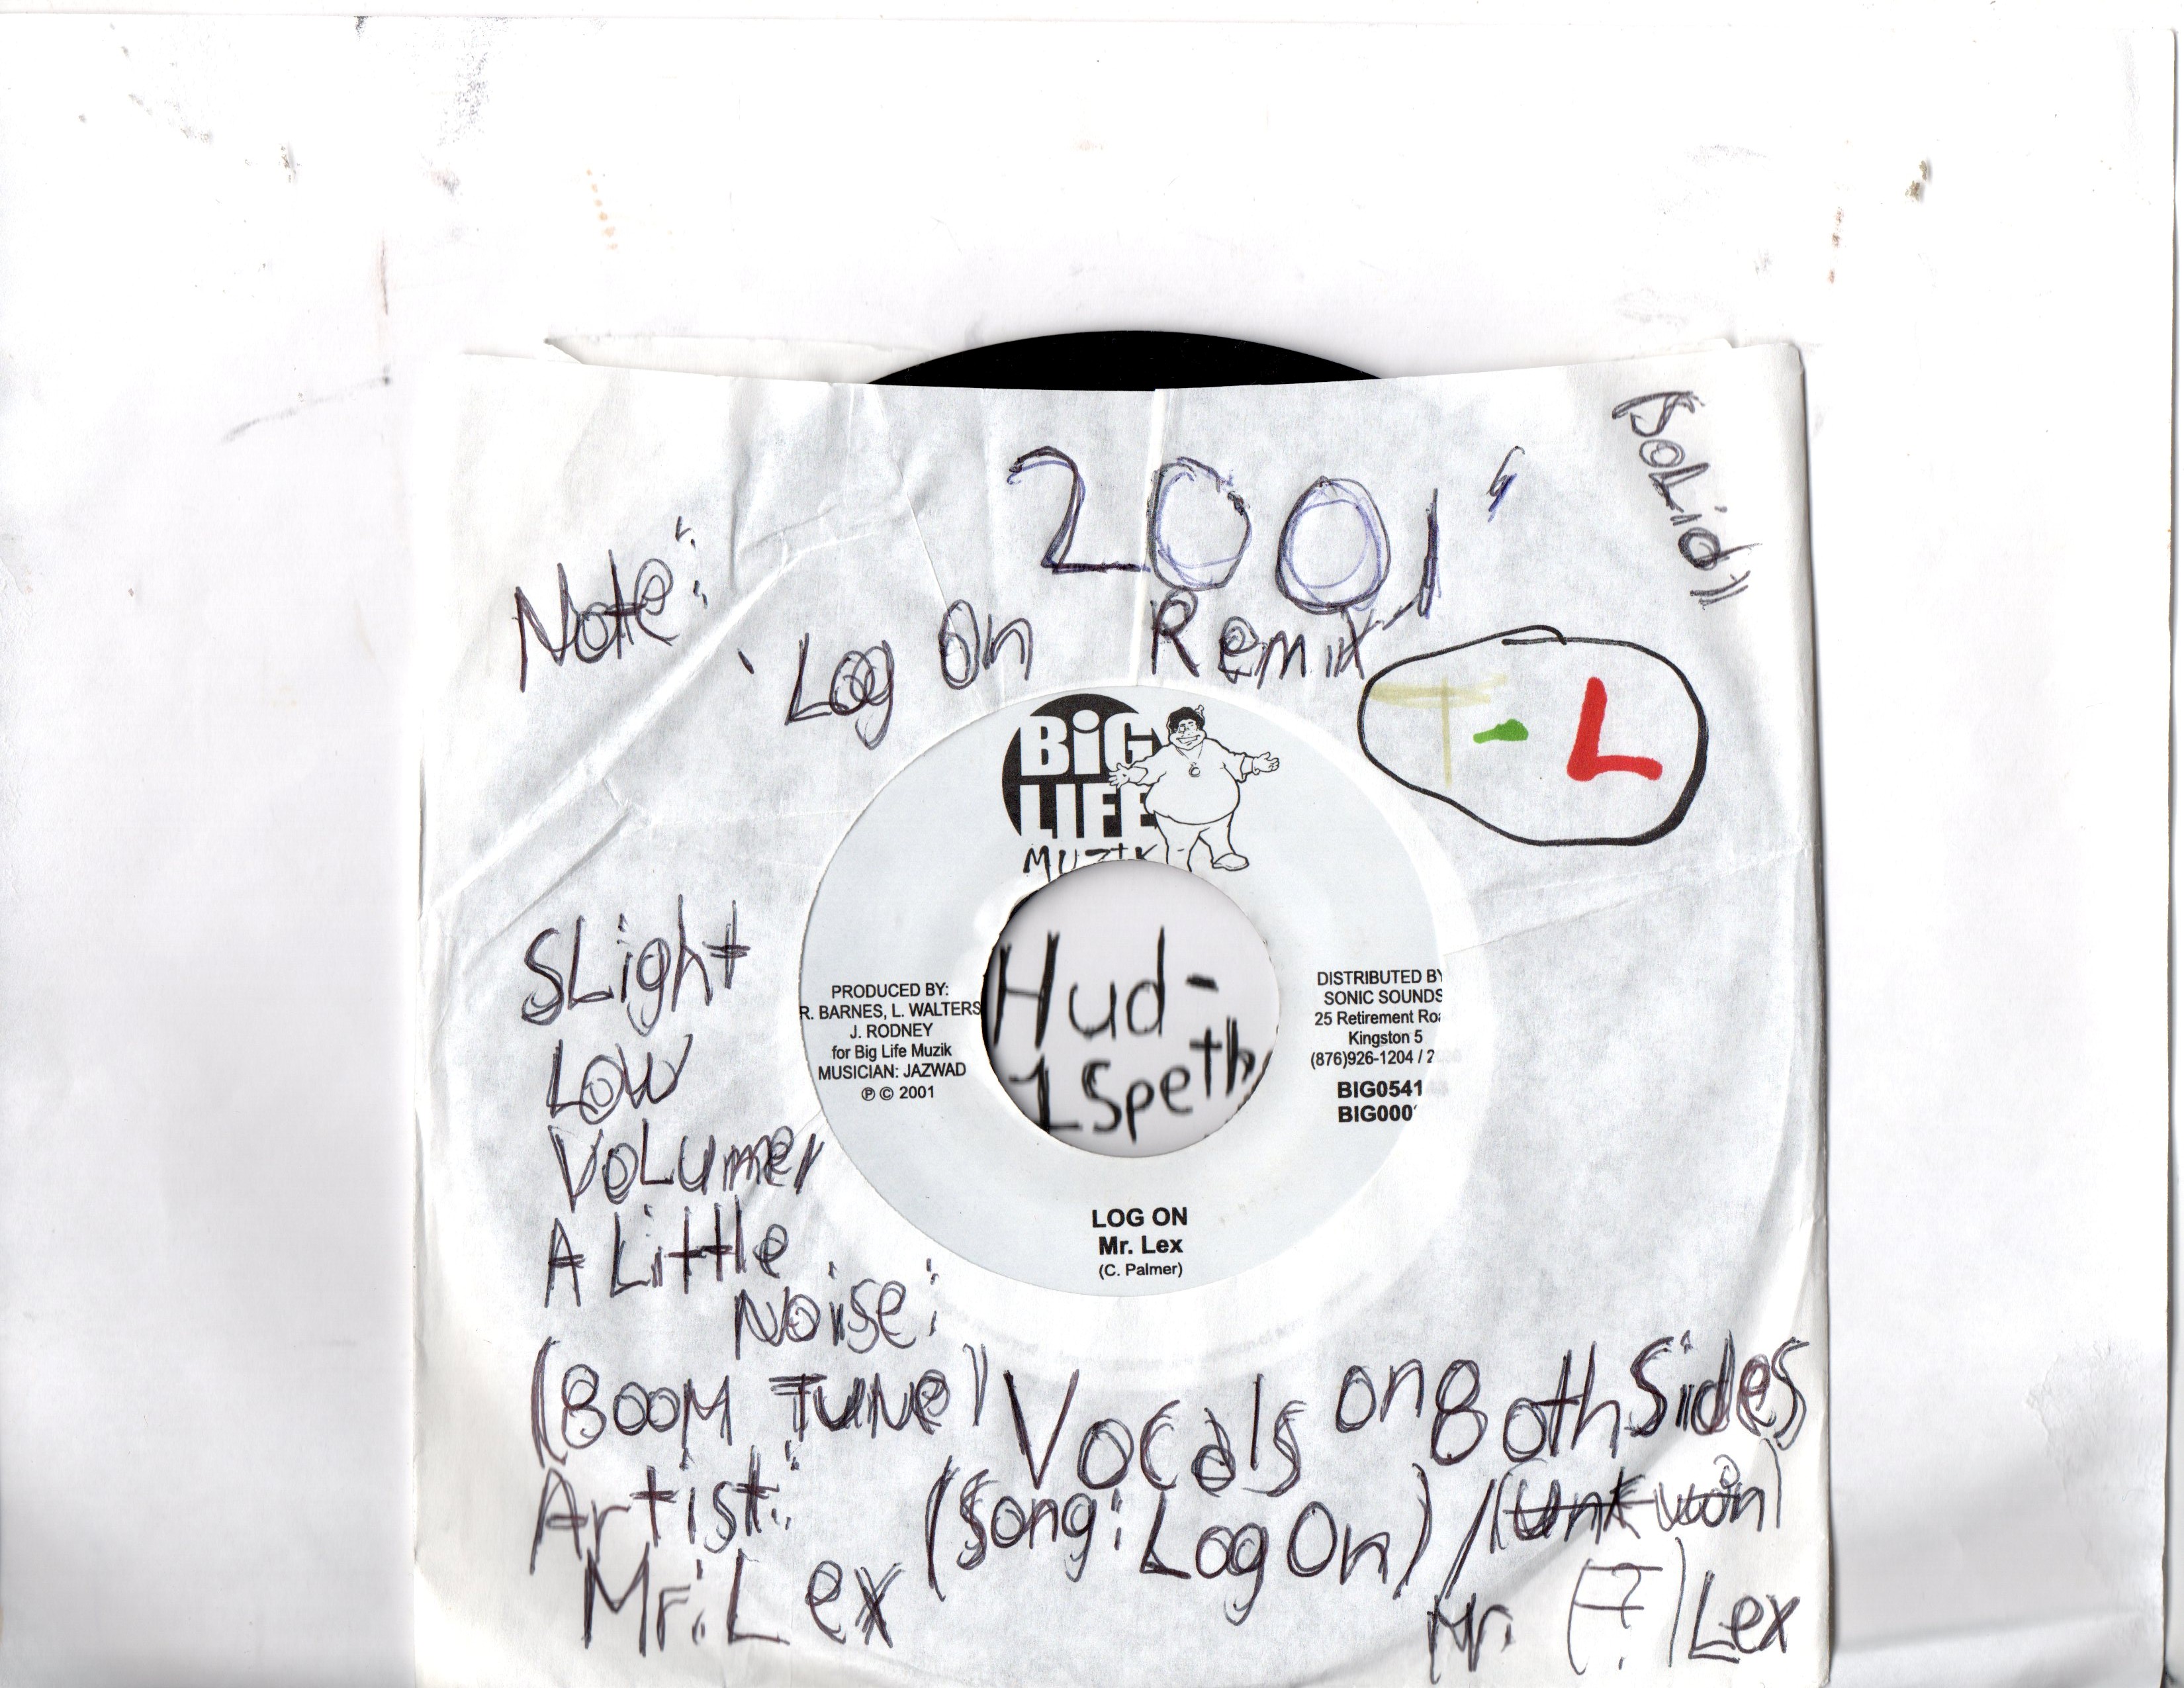 2001'
(SoLid)
Note:
'Log On Remix'
T-L
BiG
LIFE
MUZIK
SLight
Low
VoLume/
A Little
Noise:
Hud-
1Speth
PRODUCED BY:
R. BARNES, L. WALTERS
J. RODNEY
for Big Life Muzik
MUSICIAN: JAZWAD
℗ © 2001
DISTRIBUTED BY
SONIC SOUNDS
25 Retirement
Kingston 5
(876)926-1204 / 2
BIG0541
BIG000
LOG ON
Mr. Lex
(C. Palmer)
(BOOM TUNe)
Vocals on Both Sides
Artist:
Mr. Lex
(Song: Log On) / (Unkwon)
Mr. (?) Lex